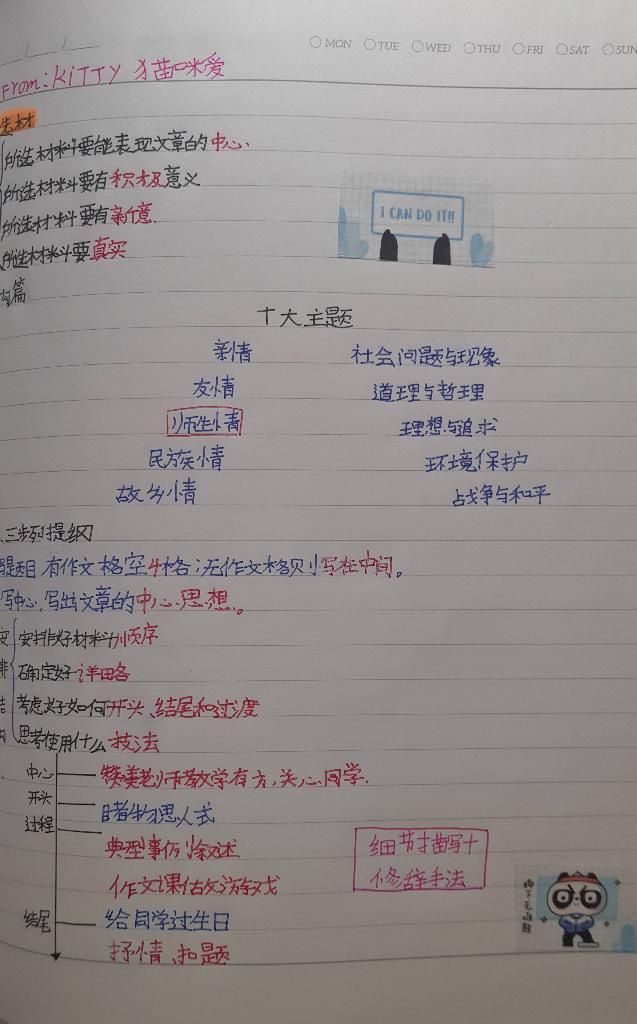 MON TUE WED THU FRI SAT SUN
From: KITTY 猫咪爱
选材
所选材料要能表现文章的中心.
所选材料要有积极意义
所选材料要有新意.
所选材料要真实
I CAN DO IT!!
篇
十大主题
亲情 社会问题与现象
友情 道理与哲理
师生情 理想与追求
民族情 环境保护
故乡情 战争与和平
三步列提纲
题目 有作文格空4格;无作文格则写在中间。
写中心,写出文章的中心思想。
安 安排好材料顺序
排 确定好详略
结 考虑好如何开头、结尾和过渡
构 思考使用什么技法
中心 赞美老师教学有方,关心同学.
开头 睹物思人式
过程
典型事例 除叙述
细节描写+
修辞手法
作文课做游戏
结尾 给同学过生日
抒情、扣题
脚下无难题